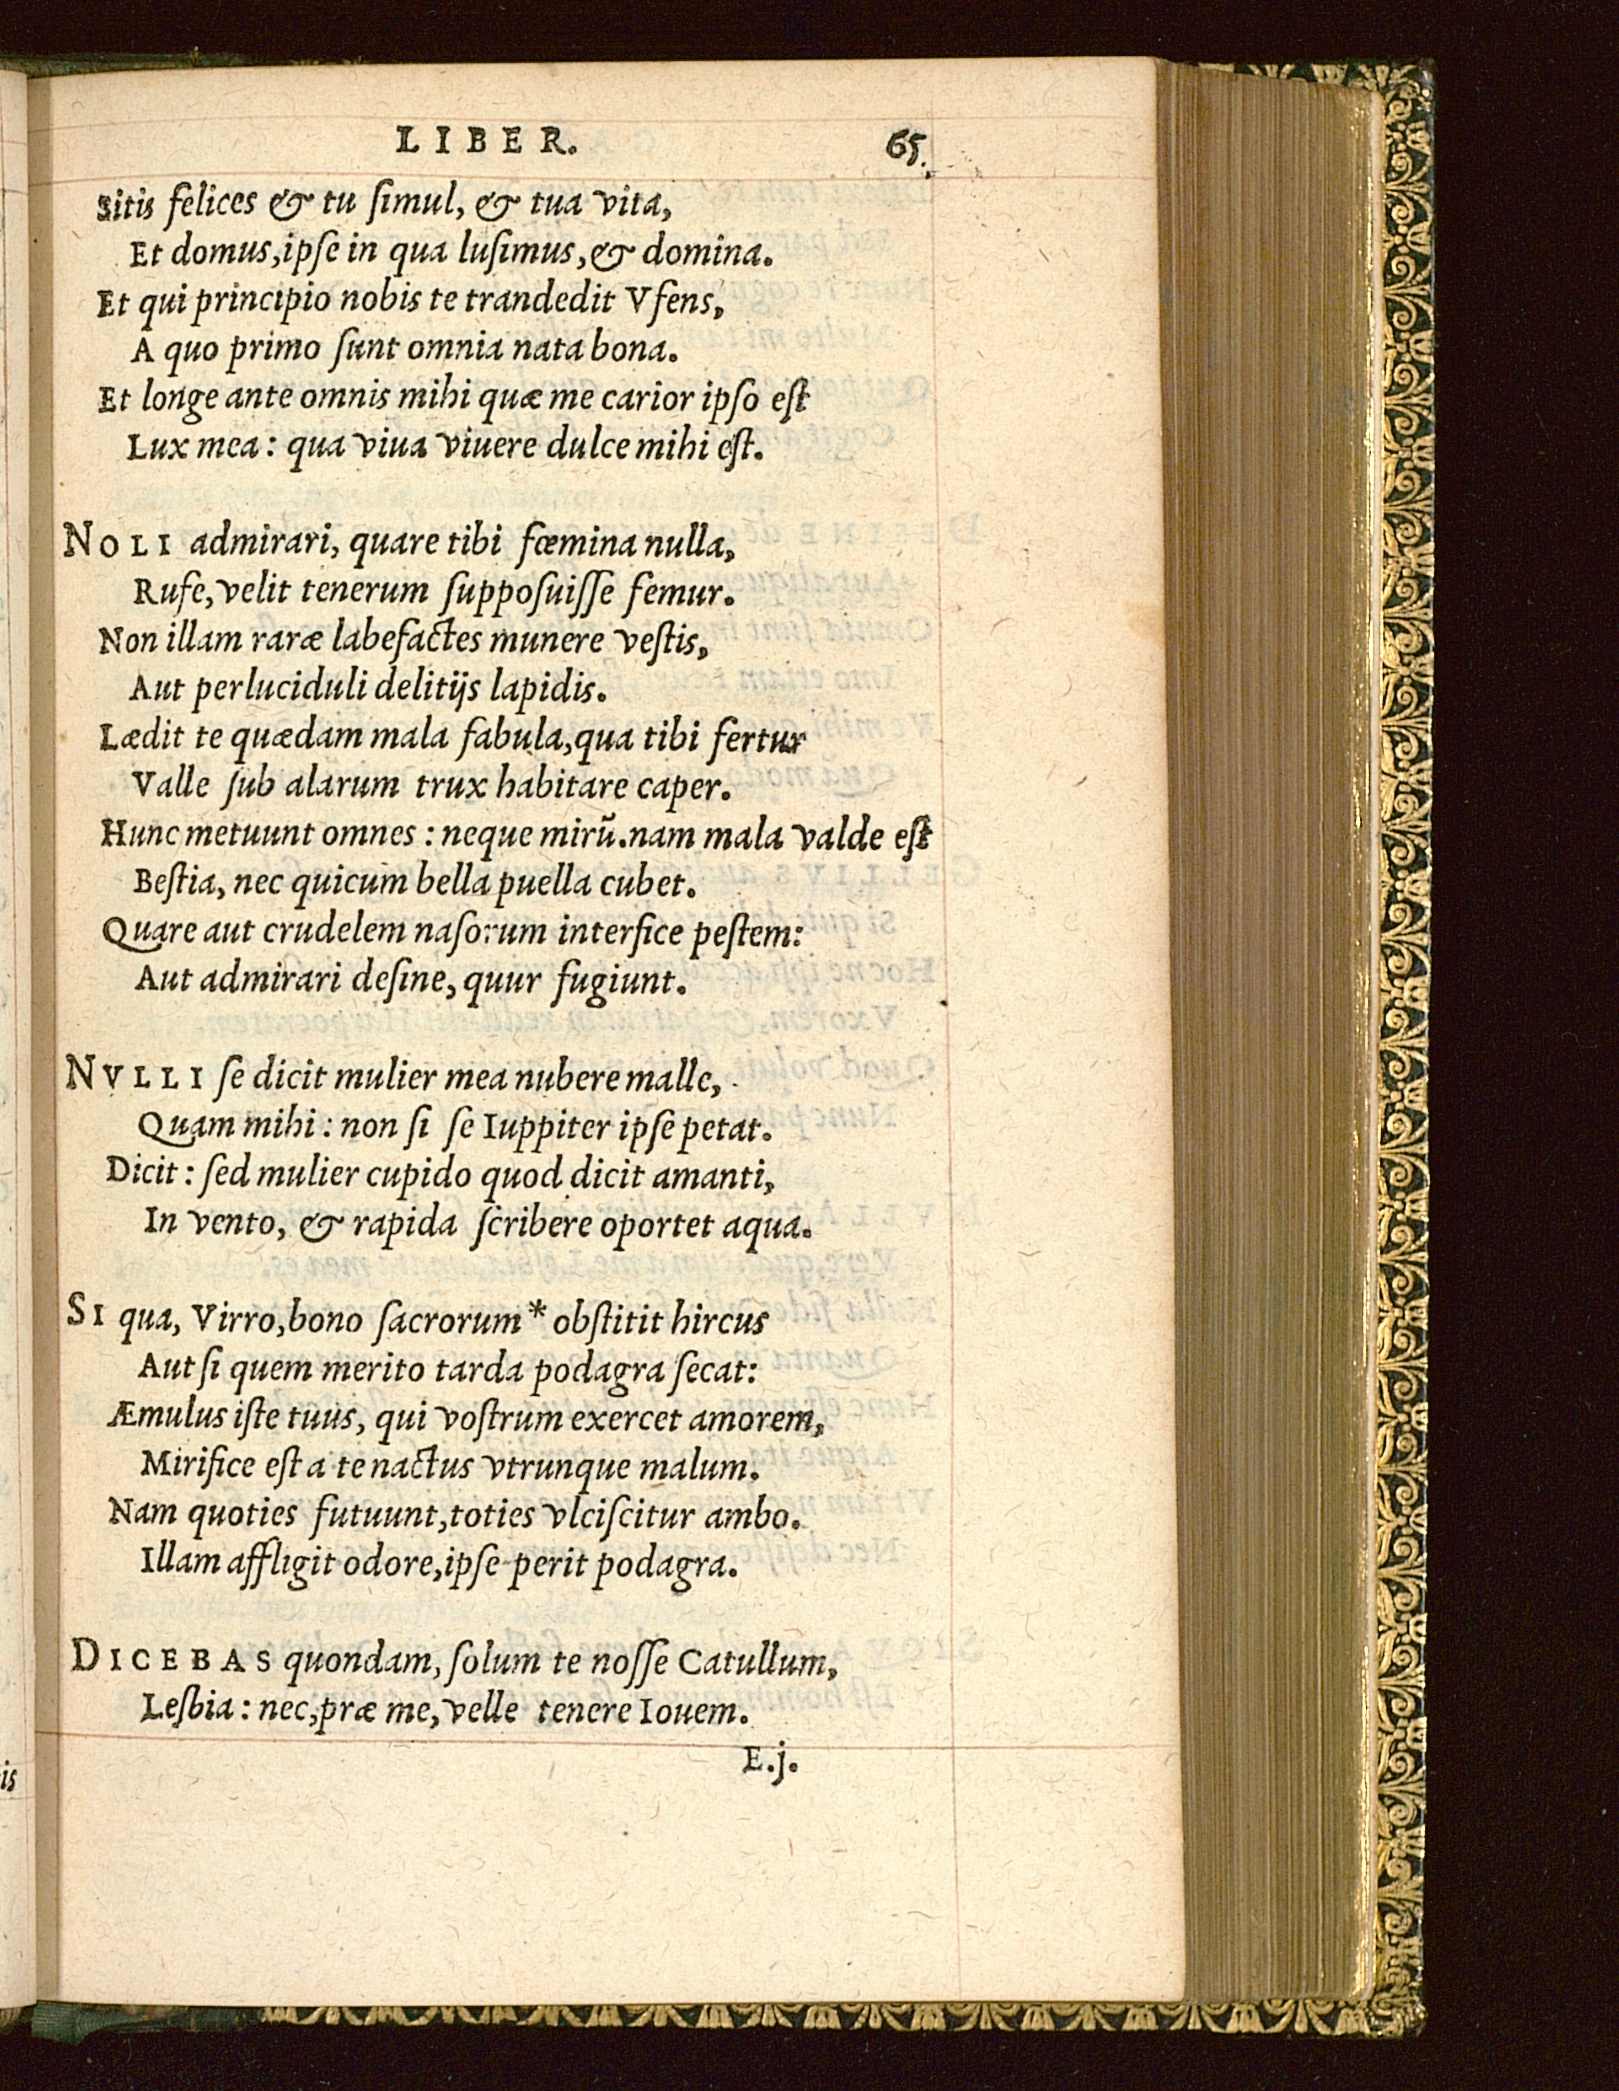 LIBER. 65.
Sitis felices & tu ſimul, & tua vita,
Et domus, ipſe in qua luſimus, & domina.
Et qui principio nobis te trandedit Vfens,
A quo primo ſunt omnia nata bona.
Et longe ante omnis mihi quæ me carior ipſo eſt
Lux mea: qua viua viuere dulce mihi eſt.
NOLI admirari, quare tibi fœmina nulla,
Rufe, velit tenerum ſuppoſuiſſe femur.
Non illam raræ labefactes munere veſtis,
Aut perluciduli delitijs lapidis.
Lædit te quædam mala fabula, qua tibi fertur
Valle ſub alarum trux habitare caper.
Hunc metuunt omnes: neque mirũ. nam mala valde eſt
Beſtia, nec quicum bella puella cubet.
Quare aut crudelem naſorum interfice peſtem:
Aut admirari deſine, quur fugiunt.
NVLLI ſe dicit mulier mea nubere malle,
Quam mihi: non ſi ſe Iuppiter ipſe petat.
Dicit: ſed mulier cupido quod dicit amanti,
In vento, & rapida ſcribere oportet aqua.
SI qua, Virro, bono ſacrorum * obſtitit hircus
Aut ſi quem merito tarda podagra ſecat:
Æmulus iſte tuus, qui voſtrum exercet amorem,
Mirifice eſt a te nactus vtrunque malum.
Nam quoties futuunt, toties vlciſcitur ambo.
Illam affligit odore, ipſe perit podagra.
DICEBAS quondam, ſolum te noſſe Catullum,
Leſbia: nec, præ me, velle tenere Iouem.
E.j.
is